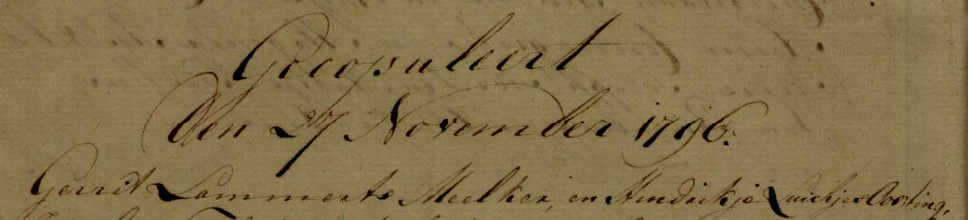 Gecopuleert
den 27 November 1796.
Gerrit Lammerts Meelker, en Hindrikje Luichjes Oosting,